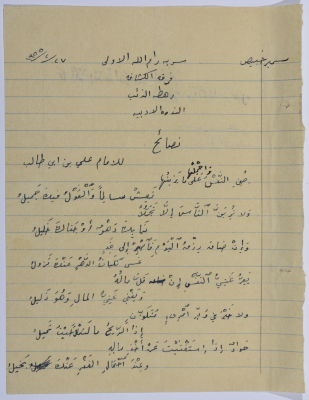 سرية رام الله الاولى
فرقة الكشافة
رهط الذئب
الندوة الادبية
نصائح
للامام علي بن ابي طالب
صُنِ النَّفْسَ وَاحْمِلْهَا عَلَى مَا يَزِينُهَا
تَعِشْ سالماً وَالْقَوْلُ فيكَ جَميلُ
ولا تُرِيَنَّ النَّاسَ إِلَّا تَجَمُّلاً
نَبا بِكَ دَهْرٌ أَوْ جَفَاكَ خَليلُ
وَإِنْ ضاقَ رِزْقُ الْيَوْمِ فَاصْبِرْ إِلى غَدٍ
عَسى نَكَباتُ الدَّهْرِ عَنْكَ تَزولُ
يَعِزُّ غَنِيُّ النَّفْسِ إِنْ قَلَّ مالُهُ
وَيَغْنَى غَنِيُّ المالِ وَهْوَ ذَليلُ
ولا خَيْرَ في وُدِّ امْرِئٍ مُتَلَوِّنٍ
إِذَا الرِّيحُ مالَتْ مالَ حَيْثُ تَميلُ
جَوادٌ إِذا اسْتَغْنَيْتَ عَنْ أَخْذِ مالِهِ
وعِنْدَ احْتِمالِ الفَقْرِ عَنْكَ بَخيلُ